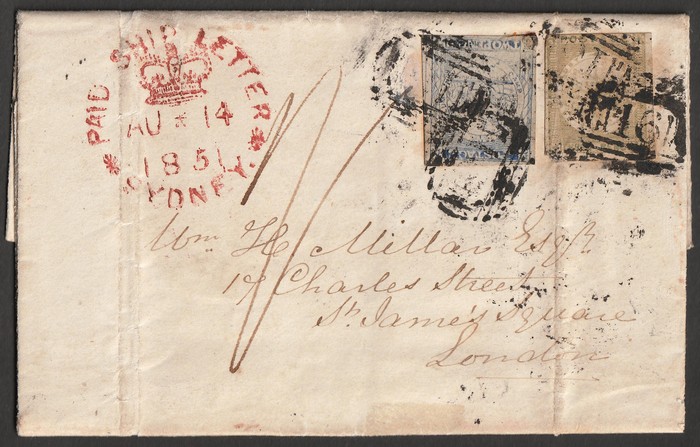 PAID SHIP LETTER
AU * 14
1851
* SYDNEY *
Wm H Millar Esqr
17 Charles Street
St James's Square
London